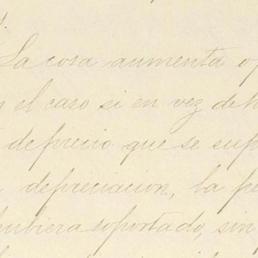 La cosa aumenta o
el caso si en vez de h
de precio que se sup
depreciacion, la pe
hubiera soportado, sin